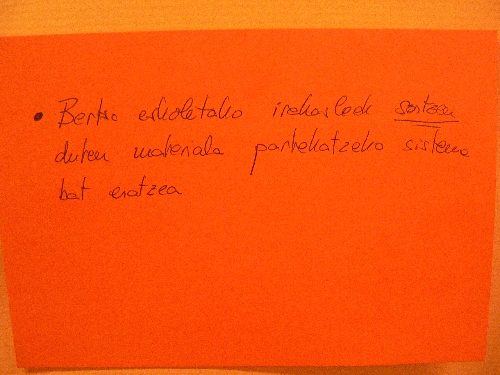 • Bertso eskoletako irakasleek sortzen
duten materiala partekatzeko sistema
bat eratzea